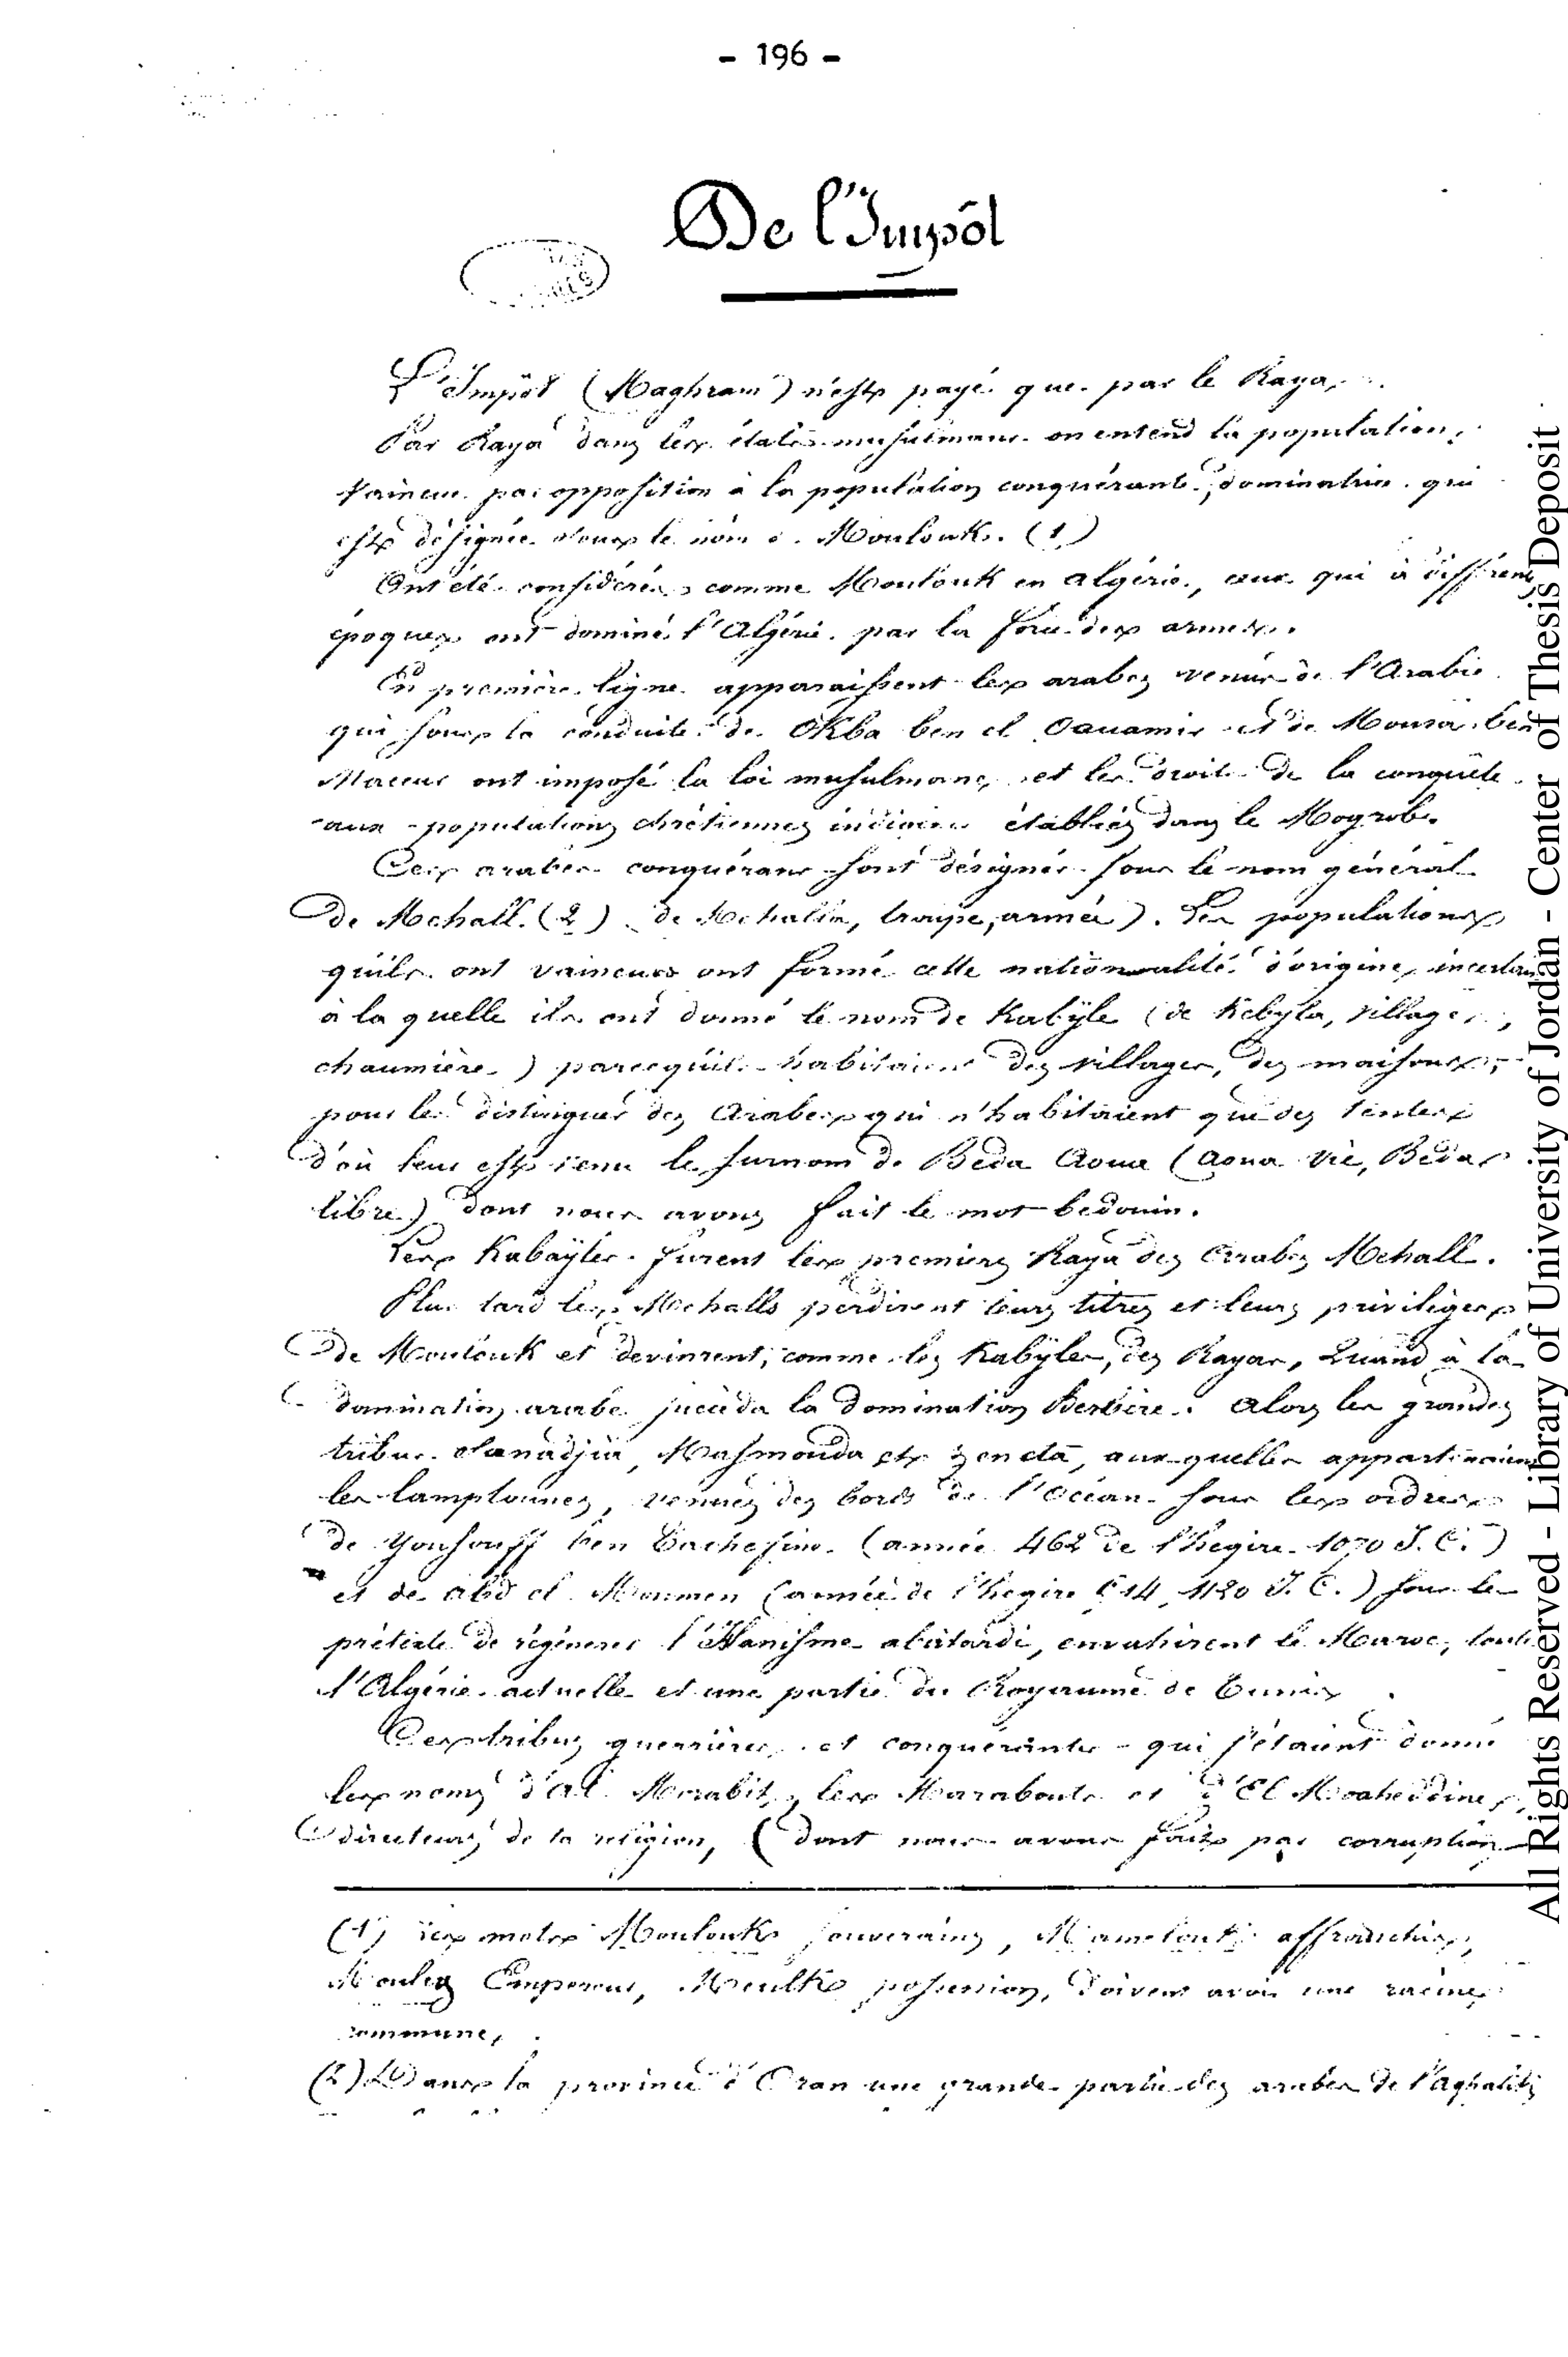 - 196 -
De l'Impôt
L'Impôt (Maghram) n'est payé que par le Raya.
Par Raya dans les états musulmans on entend la population
vaincue par opposition à la population conquérante, dominatrice qui
est désignée sous le nom de Moulouk. (1)
Ont été considérés comme Moulouk en algérie, ceux qui à différent
époques ont dominé l'Algérie par la force des armes.
En première ligne apparaissent les arabes venus de l'Arabie
qui sous la conduite de Okba ben el et de Moussa ben
ont imposé la loi musulmane et les droits de la conquête
aux populations chrétiennes établies dans le Mogrob.
Ces arabes conquérans sont désignés sous le nom général
de Mehall. (2) de Mehalla, troupe, armée). Les populations
qu'ils ont vaincues ont formé cette nationnalité d'origine incertain
à la quelle ils ont donné le nom de Kabÿle (de Kebyla, village,
chaumière) parcequ'ils habitaient des villages, des maisons,
pour les distinguer des Arabes qui n'habitaient que des tentes
d'où leur est venu le surnom de Béda Aoua (Aoua vie, Béda
libre) dont nous avons fait le mot bedouin.
Les Kabaÿles furent les premiers Raya des Arabes Mehall.
Plus tard les Mehalls perdirent leurs titres et leurs priviléges
de Moulouk et devinrent, comme les Kabÿles, des Rayas, Quand à la
domination arabe succéda la domination Berbère. Alors les grandes
tribus Sanadjia, Masmouda et zeneta, aux quelles appartenaient
les lamptounes, venues des bords de l'Océan sous les ordres
de Yousouff ben Tachefine (année 462 de l'hegire 1070 J. C.)
et de abd el Moumen (année de l'hegire 514 1120 J. C.) sous le
prétexte de régénerer l'Islanisme abâtardi, envahirent le Maroc, toute
l'Algérie actuelle et une partie du Royaume de Tunis
Ces tribus guerrières et conquérantes qui s'étaient donné
les noms d'al Morabit, les Marabouts et d'El Moaheddine,
directeurs de la religion, (dont nous avons fait par corruption
(1) Les mots Moulouk souverains, Mamelouk affranchis,
Mouley Empereur, Meulk possession, doivent avoir une racine
commune,
(2) Dans la province d'Oran une grande partie des arabes de l'Aghalik
All Rights Reserved - Library of University of Jordan - Center of Thesis Deposit